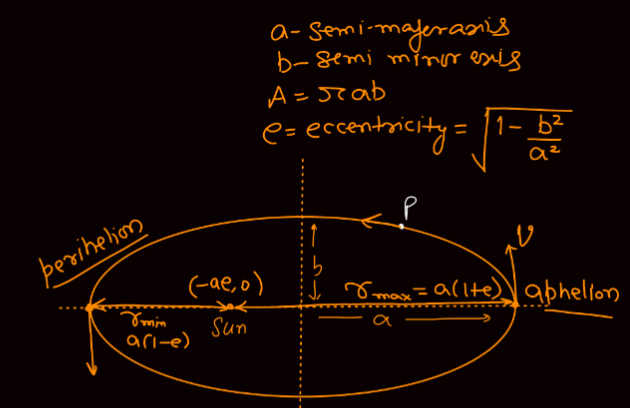 a- semi-major axis
b- semi minor axis
A = πab
e = eccentricity = √(1 - b²/a²)
P
perihelion
V
b
(-ae, 0)
r max = a(1+e)
aphelion
r min
a(1-e)
Sun
a